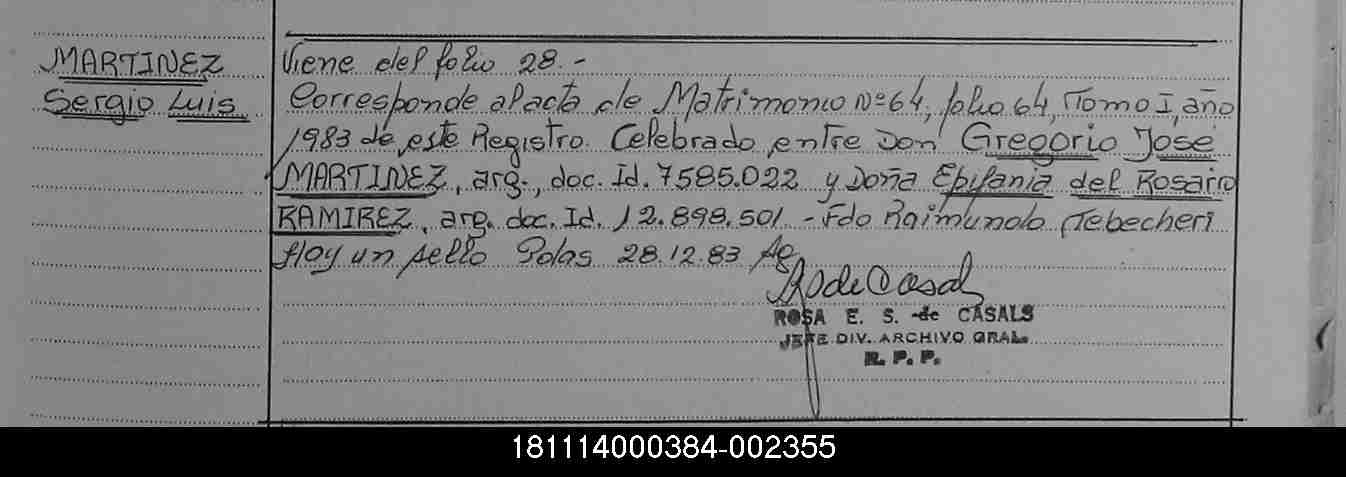 MARTINEZ
Sergio Luis
Viene del folio 28.-
Corresponde al acta de Matrimonio Nº 64, folio 64, Tomo I, año
1983 de este Registro. Celebrado entre Don Gregorio José
MARTINEZ, arg., doc. Id. 7585.022 y Doña Epifania del Rosario
RAMIREZ, arg. doc. Id. 12.898.501 - Fdo Raimundo Tebecheri
Hay un sello Pdas 28.12.83
ROSA E. S. de CASALS
JEFE DIV. ARCHIVO GRAL.
R. P. P.
181114000384-002355